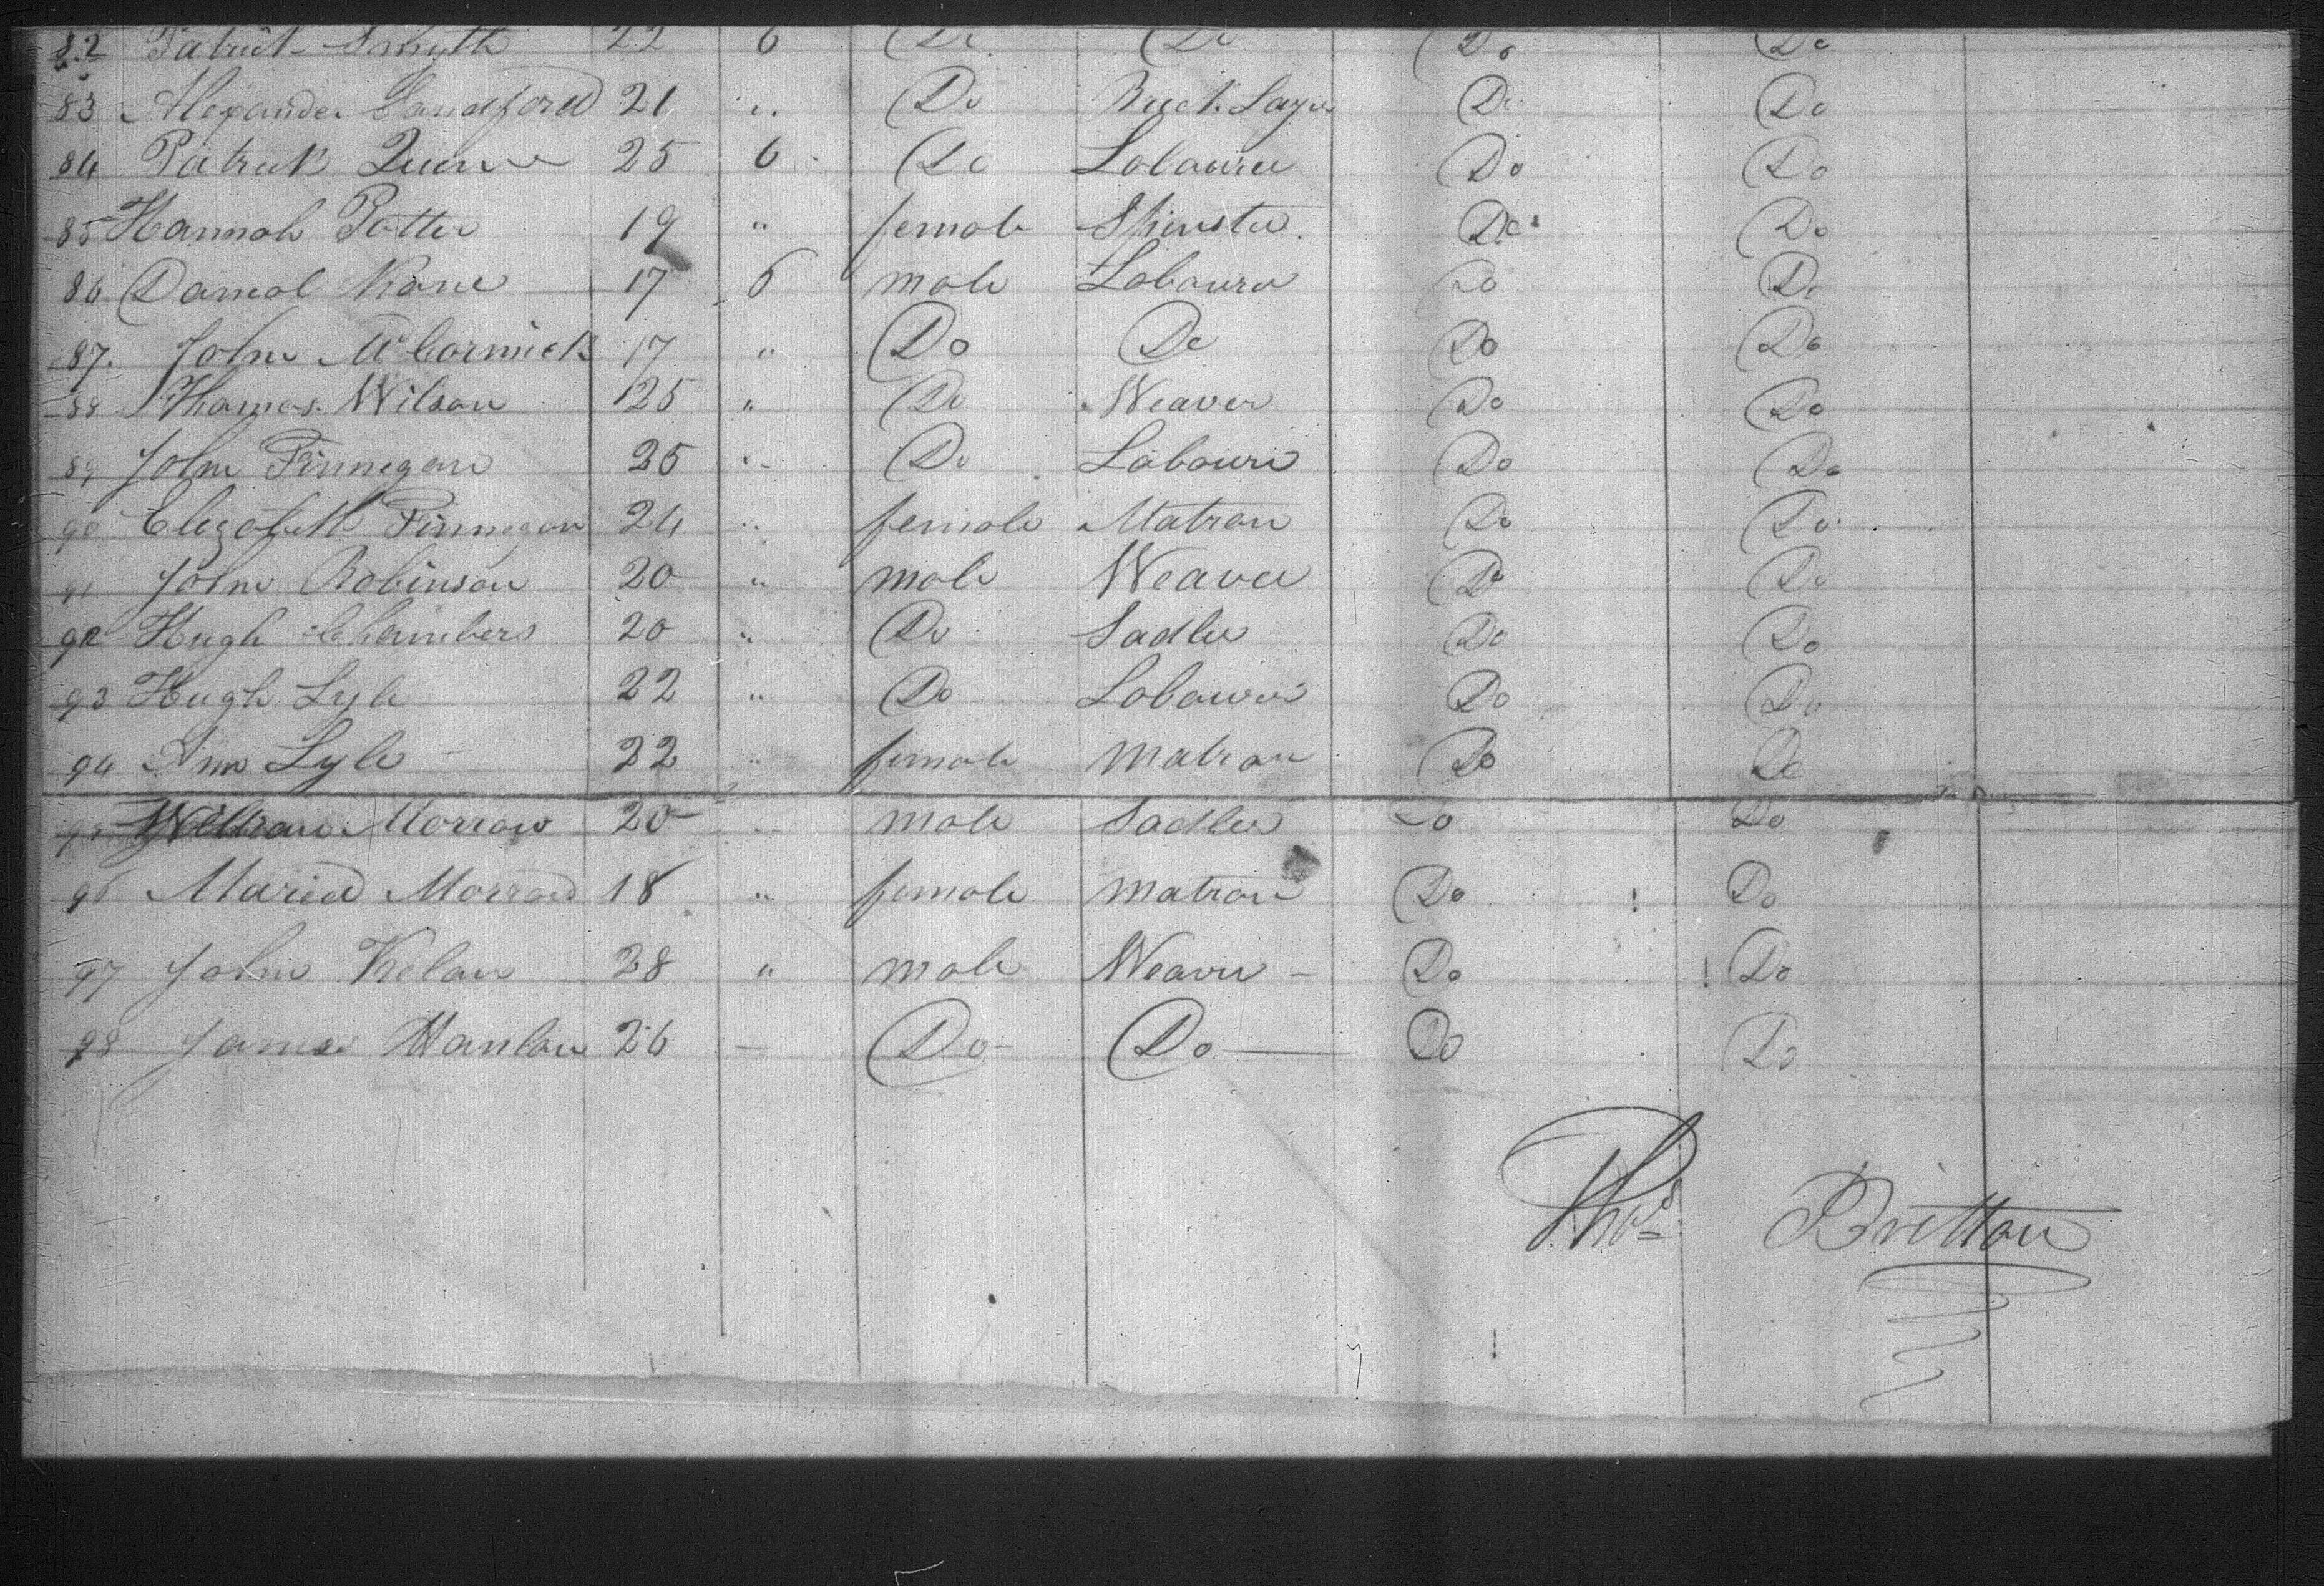 82 Patrick Smyth 22 6 Do Do Do Do
83 Alexander Sandford 21 " Do Brick Layer Do Do
84 Patrick Quinn 25 6 Do Labourer Do Do
85 Hannah Potter 19 " female Spinster Do Do
86 Daniel Kane 17 6 male Labourer Do Do
87. John McCormick 17 " Do Do Do Do
88 Thomas Wilson 25 " Do Weaver Do Do
89 John Finnegan 25 " Do Labourer Do Do
90 Elizabeth Finnegan 24 " female Matron Do Do
91 John Robinson 20 " male Weaver Do Do
92 Hugh Chambers 20 " Do Sadler Do Do
93 Hugh Lyle 22 " Do Labourer Do Do
94 Ann Lyle 22 " female Matron Do Do
95 William Morrow 20 " male Sadler Do Do
96 Maria Morrow 18 " female Matron Do Do
97 John Kelan 28 " male Weaver Do Do
98 James Hanlon 26 – Do Do Do Do
Thos Britton